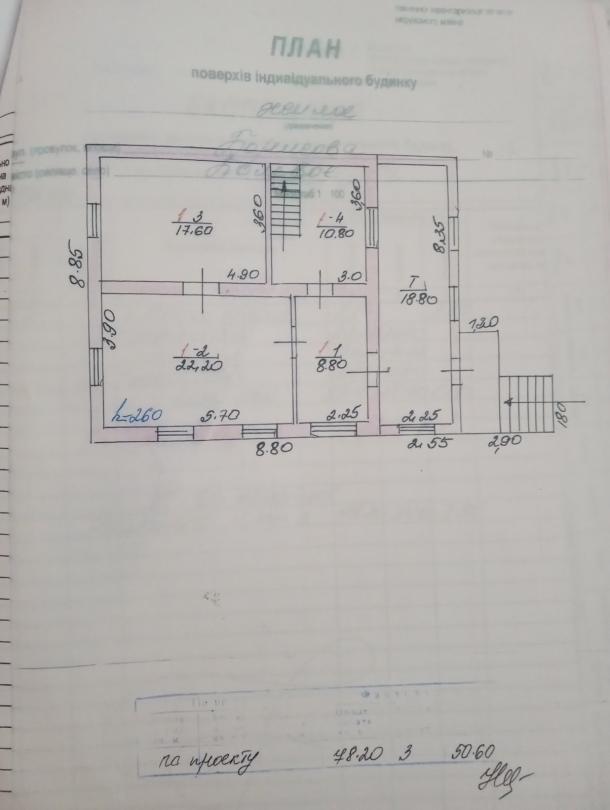 ПЛАН
поверхів індивідуального будинку
жилое
№
1-3
17.60
3.60
1-4
10.80
3.60
8.85
4.90
3.0
8.35
I
18.80
1.20
3.90
1-2
22.20
1-1
8.80
h=260
5.70
2.25
2.25
8.80
2.55
2,90
180
по проекту 78.20 3 50.60